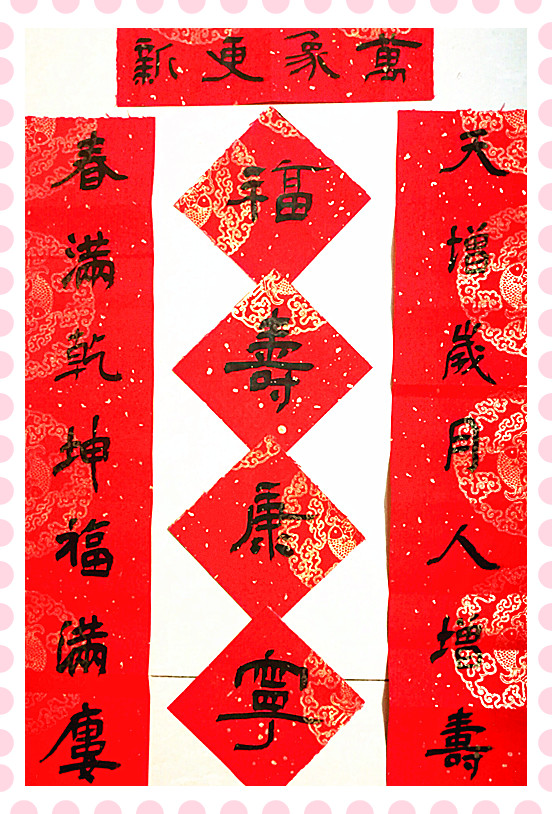 萬象更新
天增歲月人增壽
春滿乾坤福滿廔
福
壽
康
寧